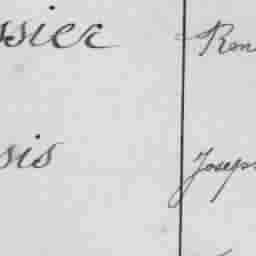 ssier Ren
sis Joseph